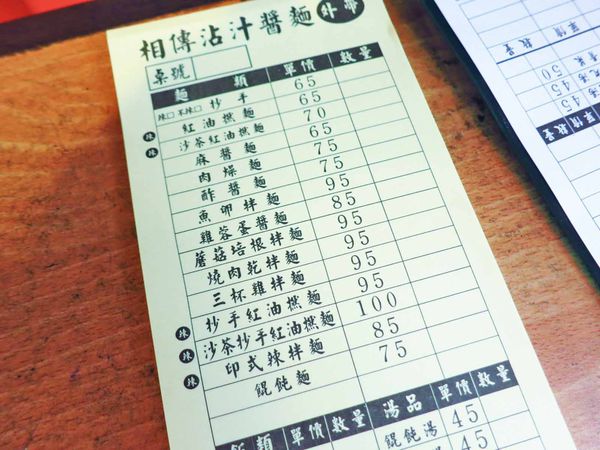 相傳沾汁醬麵 外帶
桌號
麵類 單價 數量
辣□ 不辣□ 抄手 65
辣 紅油撚麵 65
辣 沙茶紅油撚麵 70
麻醬麵 65
肉燥麵 75
酢醬麵 75
魚卵拌麵 95
雞蓉蛋醬麵 85
蘑菇培根拌麵 95
燒肉乾拌麵 95
三杯雞拌麵 95
辣 抄手紅油撚麵 95
辣 沙茶抄手紅油撚麵 100
辣 印式辣拌麵 85
餛飩麵 75
飯類 單價 數量 湯品 單價 數量
餛飩湯 45
45
單價 數量
45
45
50
單價 數量